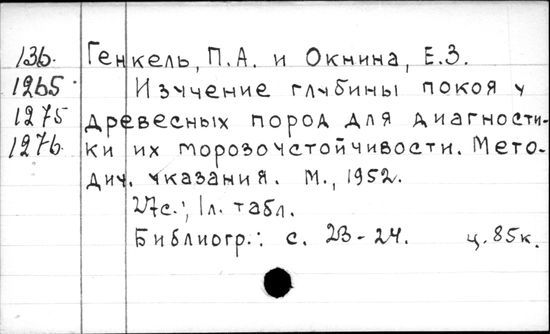 136. Генкель, П.А. и Окнина, Е.З.
1265 Изучение глубины покоя у
1275 древесных пород для диагности-
1276. ки их морозоустойчивости. Мето-
дич. указания. М., 1952.
27с.; 1л. табл.
Библиогр.: с. 23-24. ц. 85к.